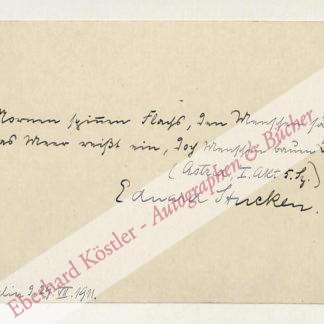 Nornen spinnen Flachs, den Menschen
das Meer reißt ein, doch Menschen bauen
(Astrid, I. Akt 5. Sz.)
Eduard Stucken.
Berlin d. 29. VII. 1911.
Eberhard Köstler - Autographen & Bücher